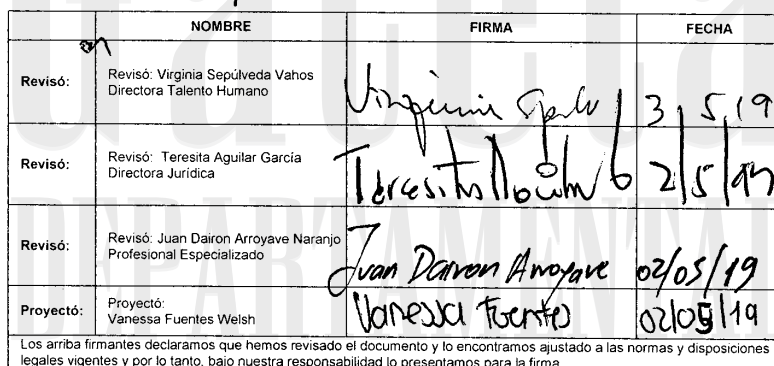 NOMBRE FIRMA FECHA
Revisó: Revisó: Virginia Sepúlveda Vahos
Directora Talento Humano
3/5/19
Revisó: Revisó: Teresita Aguilar García
Directora Jurídica
Teresita Aguilar G 2/5/19
Revisó: Revisó: Juan Dairon Arroyave Naranjo
Profesional Especializado
Juan Dairon Arroyave 02/05/19
Proyectó: Proyectó:
Vanessa Fuentes Welsh
Vanessa Fuentes 02/05/19
Los arriba firmantes declaramos que hemos revisado el documento y lo encontramos ajustado a las normas y disposiciones
legales vigentes y por lo tanto, bajo nuestra responsabilidad lo presentamos para la firma
DEPARTAMENTAL